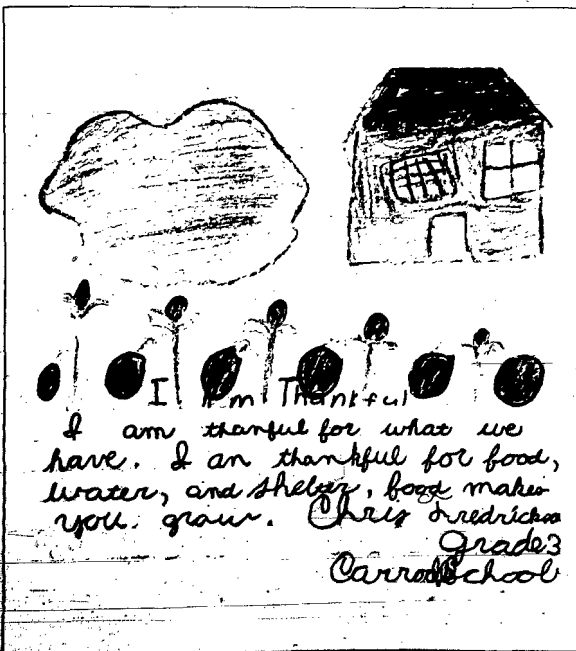 I Am Thankful
I am thanful for what we
have. I an thankful for food,
water, and shelter, food makes
you grow. Chris Fredrickson
Grade 3
School